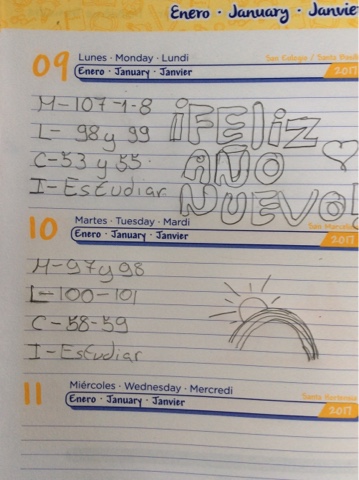 Enero · January · Janvier
09
Lunes · Monday · Lundi
Enero · January · Janvier
2017
M-107-1-8
L- 98 y 99
C-53 y 55
I-Estudiar
¡FELIZ
AÑO
NUEVO!
10
Martes · Tuesday · Mardi
Enero · January · Janvier
2017
M-97 y 98
L-100-101
C-58-59
I-Estudiar
11
Miércoles · Wednesday · Mercredi
Enero · January · Janvier
2017